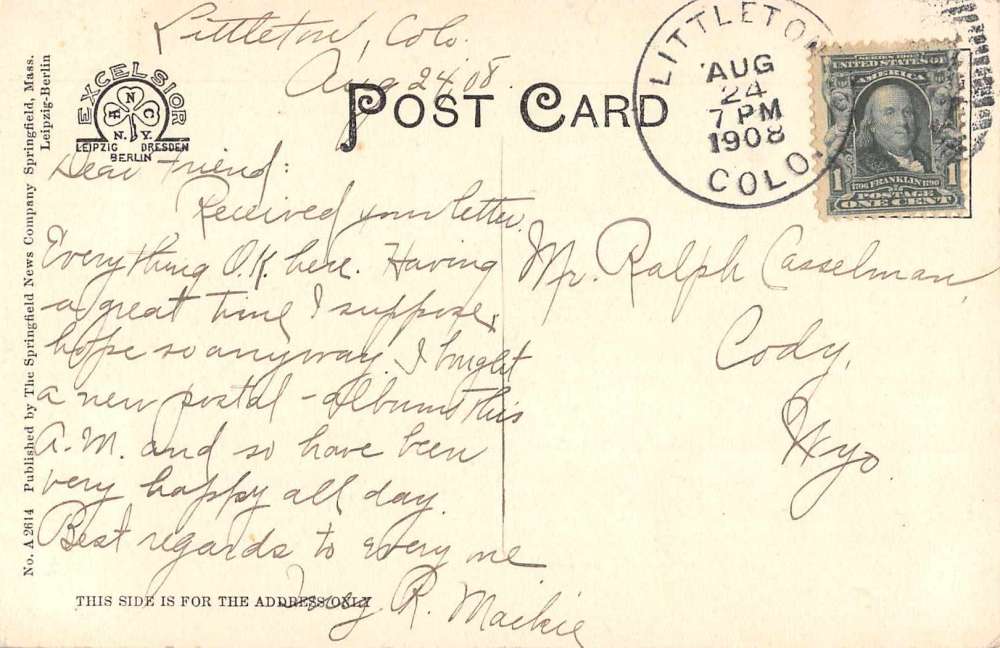 Littleton, Colo.
Aug 24, '08.
POST CARD
LITTLETON
AUG
24
7 PM
1908
COLO.
SERIES 1902
UNITED STATES OF
AMERICA
1706 FRANKLIN 1790
POSTAGE
1 1
ONE CENT
EXCELSIOR
H N C
N.Y.
LEIPZIG DRESDEN
BERLIN
No. A 2614 Published by The Springfield News Company Springfield, Mass.
Leipzig-Berlin
Dear Friend:
Received your letter.
Everything O.K. here. Having
a great time I suppose,
hope so anyway. I bought
a new postal-album this
A.M. and so have been
very happy all day.
Best regards to every one
R. Mackie
Mr. Ralph Casselman,
Cody,
Wyo
THIS SIDE IS FOR THE ADDRESS ONLY